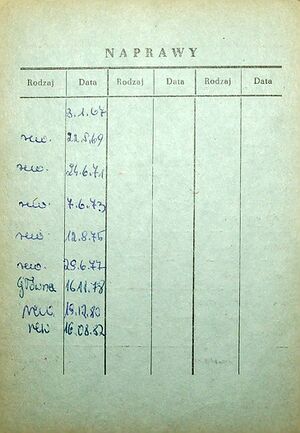 NAPRAWY
Rodzaj Data Rodzaj Data Rodzaj Data
3.1.67
rew. 22.8.69
rew. 24.6.71
rew. 7.6.73
rew. 12.8.75
rew. 29.6.77
główna 16.11.78
rew. 19.12.80
rew 16.08.82